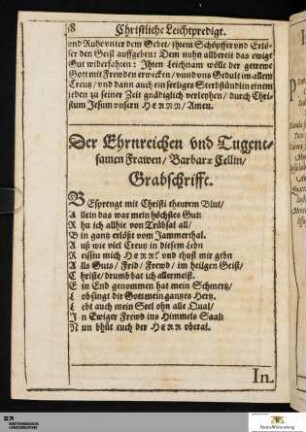 8 Christliche Leichtpredigt.
vnd Ruhe vnter dem Gebet / ihrem Schöpffer vnd Erlö-
ser den Geist auffgeben: Dem nuhn allbereit das ewige
Gut widerfahren: Ihren Leichnam wölle der getrewe
Gott mit Frewden erwecken / vnnd vns Gedult im allem
Creutz / vnd dann auch ein seeliges Sterbstündlin einem
jeden zu seiner Zeit gnädiglich verleyhen / durch Chri-
stum Jesum vnsern HERRN / Amen.
Der Ehrnreichen vnd Tugent-
samen Frawen / Barbaræ Cellin /
Grabschrifft.
BEsprengt mit Christi theurem Blut /
Allein das war mein höchstes Gut:
Rhu ich allhie von Trübsal all /
Bin gantz erlößt vom Jammerthal.
Auß wie viel Creutz in diesem Lebn
Reissen mich HERR vnd thust mir gebn
Alls Guts / Frid / Frewd / im heilgen Geist /
Christe / drumb hat ich allermeist.
Ein End genommen hat mein Schmertz /
Lobsingt dir Gott mein gantzes Hertz.
Lebt auch mein Seel ohn alle Qual /
In Ewiger Frewd ins Himmels Saal:
Nun bhüt euch der HERR vberal.
In.